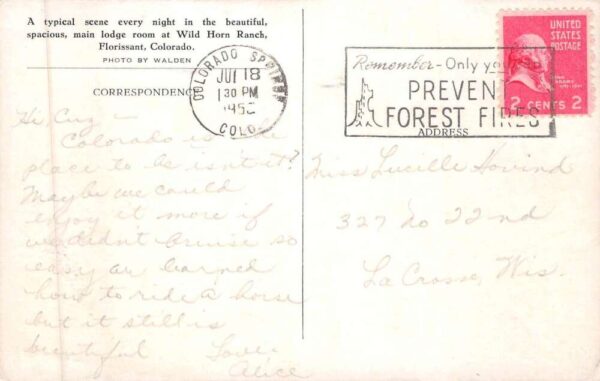 A typical scene every night in the beautiful,
spacious, main lodge room at Wild Horn Ranch,
Florissant, Colorado.
PHOTO BY WALDEN
CORRESPONDENCE
COLORADO SPRINGS
JUL 18
1 30 PM
COLO.
Remember - Only you can
PREVENT
FOREST FIRES
UNITED
STATES
POSTAGE
2 CENTS 2
ADDRESS
Hi, Cuz —
Colorado is the
place to be isn't it?
Maybe we could
enjoy it more if
we didn't bruise so
easy or learned
how to ride a horse
but it still is
beautiful Love
Alice
Miss Lucille Hovind
327 No 22nd
La Crosse, Wis.